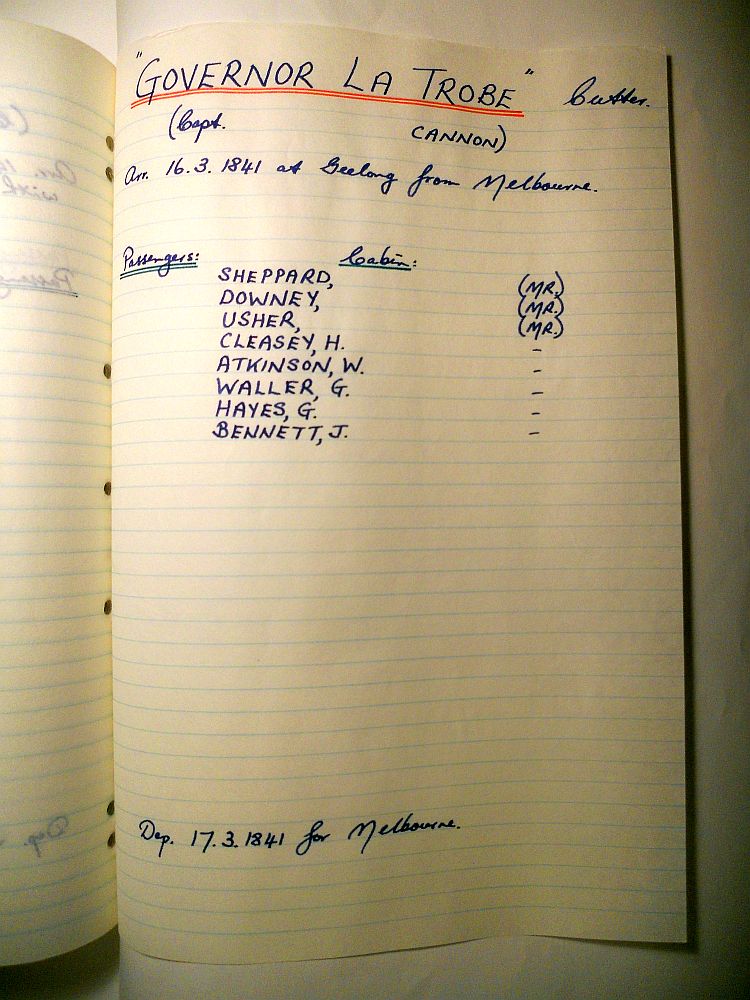 "GOVERNOR LA TROBE" Cutter.
(Capt. CANNON)
Arr. 16.3.1841 at Geelong from Melbourne.
Passengers: Cabin:
SHEPPARD, (MR.)
DOWNEY, (MR.)
USHER, (MR.)
CLEASEY, H. -
ATKINSON, W. -
WALLER, G. -
HAYES, G. -
BENNETT, J. -
Dep. 17.3.1841 for Melbourne.